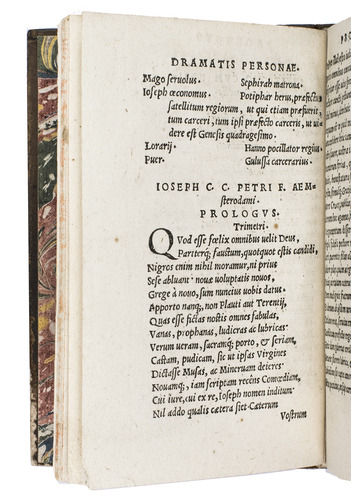 DRAMATIS PERSONAE.
Mago servulus. Sephirah matrona.
Ioseph œconomus. Potiphar herus, præfectus
satellitum regiorum, ut qui etiam præfuerit,
tum carceri, tum ipsi præfecto carceris, ut ui
dere est Genesis quadragesimo.
Lorarij. Hanno pocillator regius.
Puer. Gulussa carcerarius.
IOSEPH C. C. PETRI F. AEM-
sterodami.
PROLOGVS.
Trimetri.
QVod esse fœlix omnibus uelit Deus,
Pariterq; faustum, quotquot estis candidi,
Nigros enim nihil moramur, ni prius
Sese abluant: nouæ uoluptatis nouos,
Grege à nouo, sum nuncius uobis datus.
Apporto nanq, non Plauti aut Terentij,
Quas esse fictas nostis omnes fabulas,
Vanas, prophanas, ludicras ac lubricas:
Verum ueram, sacramq; porto, & seriam,
Castam, pudicam, sic ut ipsas Virgines
Dictasse Musas, ac Mineruam deieres:
Nouamq;, iam scriptam recéns Comœdiam,
Cui iure, cui ex re, Ioseph nomen inditum.
Nil addo qualis cætera siet. Cæterum
Vostrum